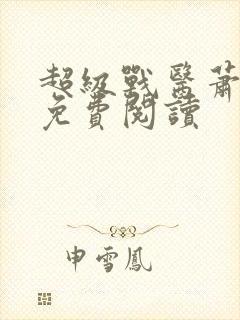 超級戰醫蕭
免費閱讀
申雪鳳